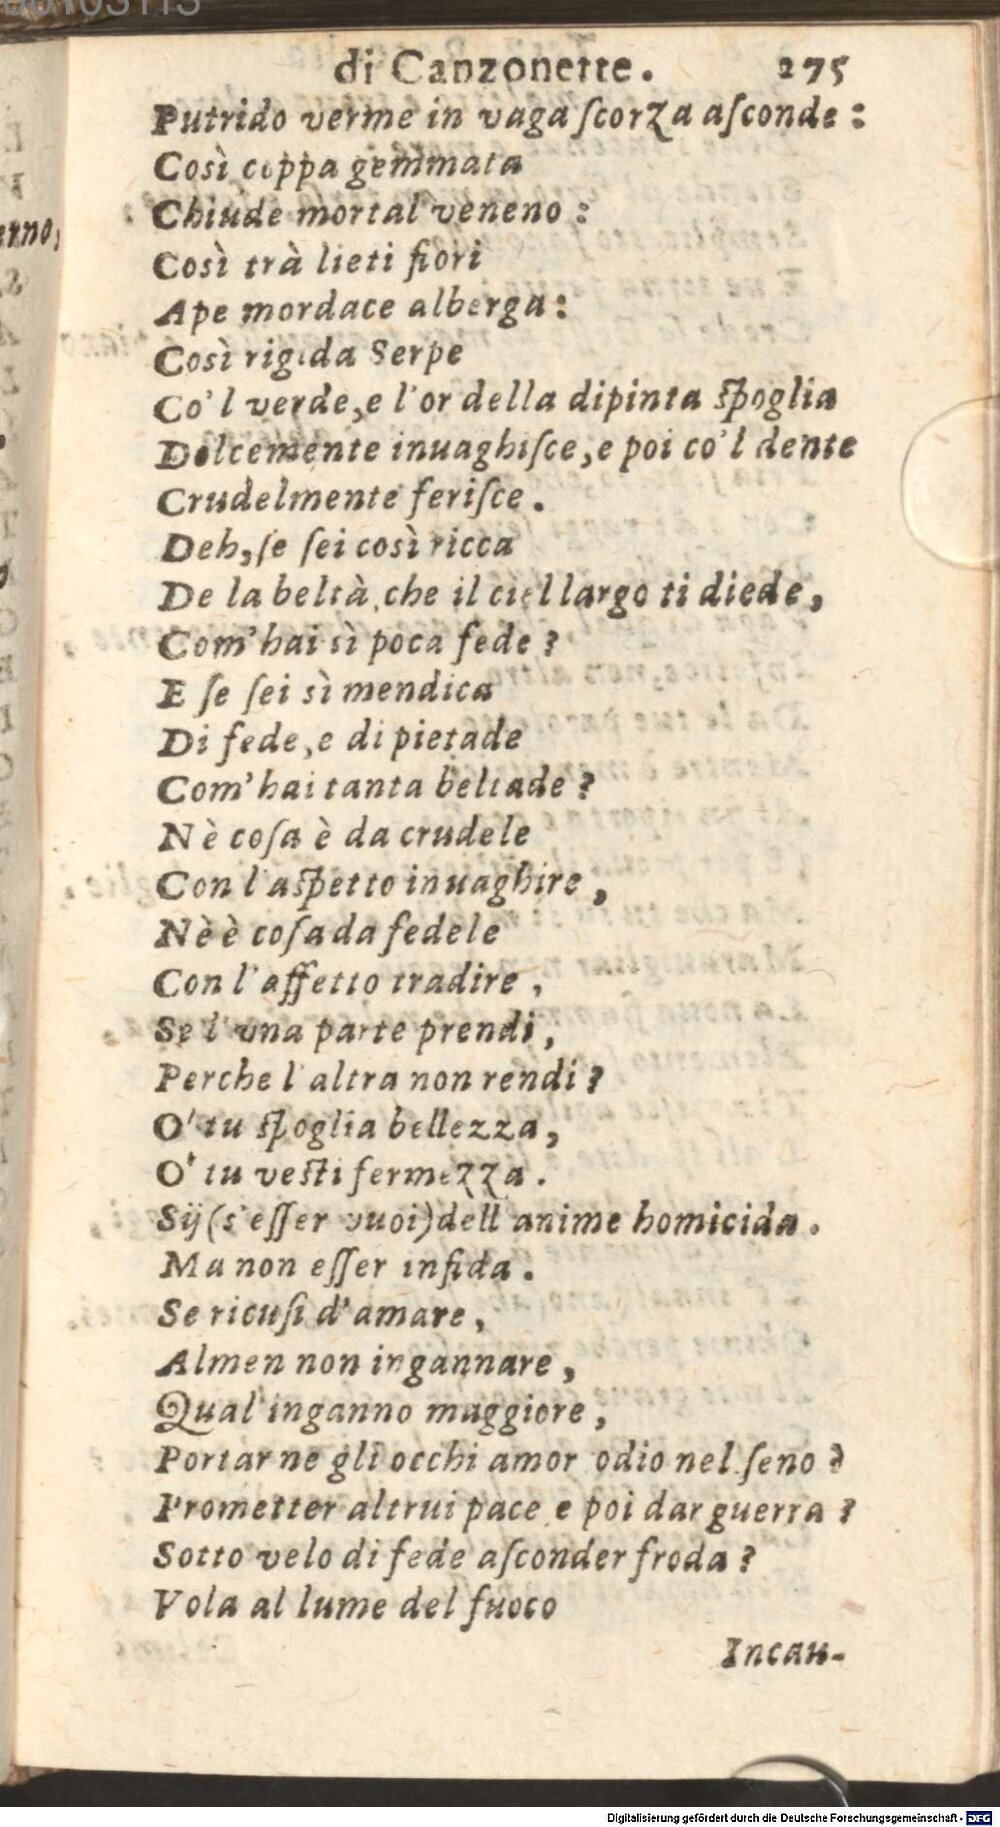 di Canzonette. 275
Putrido verme in vaga ſcorza aſconde:
Così coppa gemmata
Chiude mortal veneno:
Così trà lieti fiori
Ape mordace alberga:
Così rigida Serpe
Co'l verde, e l'or della dipinta ſpoglia
Dolcemente inuaghiſce, e poi co'l dente
Crudelmente feriſce.
Deh, ſe ſei così ricca
De la beltà, che il ciel largo ti diede,
Com'hai sì poca fede?
E ſe ſei sì mendica
Di fede, e di pietade
Com'hai tanta beltade?
Nè coſa è da crudele
Con l'aſpetto inuaghire,
Nè è coſa da fedele
Con l'affetto tradire,
Se l'vna parte prendi,
Perche l'altra non rendi?
O' tu ſpoglia bellezza,
O' tu veſti fermezza.
Sij (s'eſſer vuoi) dell'anime homicida.
Ma non eſſer infida.
Se ricuſi d'amare,
Almen non ingannare,
Qual'inganno maggiore,
Portar ne gli occhi amor odio nel ſeno?
Prometter altrui pace e poi dar guerra?
Sotto velo di fede aſconder froda?
Vola al lume del fuoco
Incau-
erno,
Digitalisierung gefördert durch die Deutsche Forschungsgemeinschaft - DFG